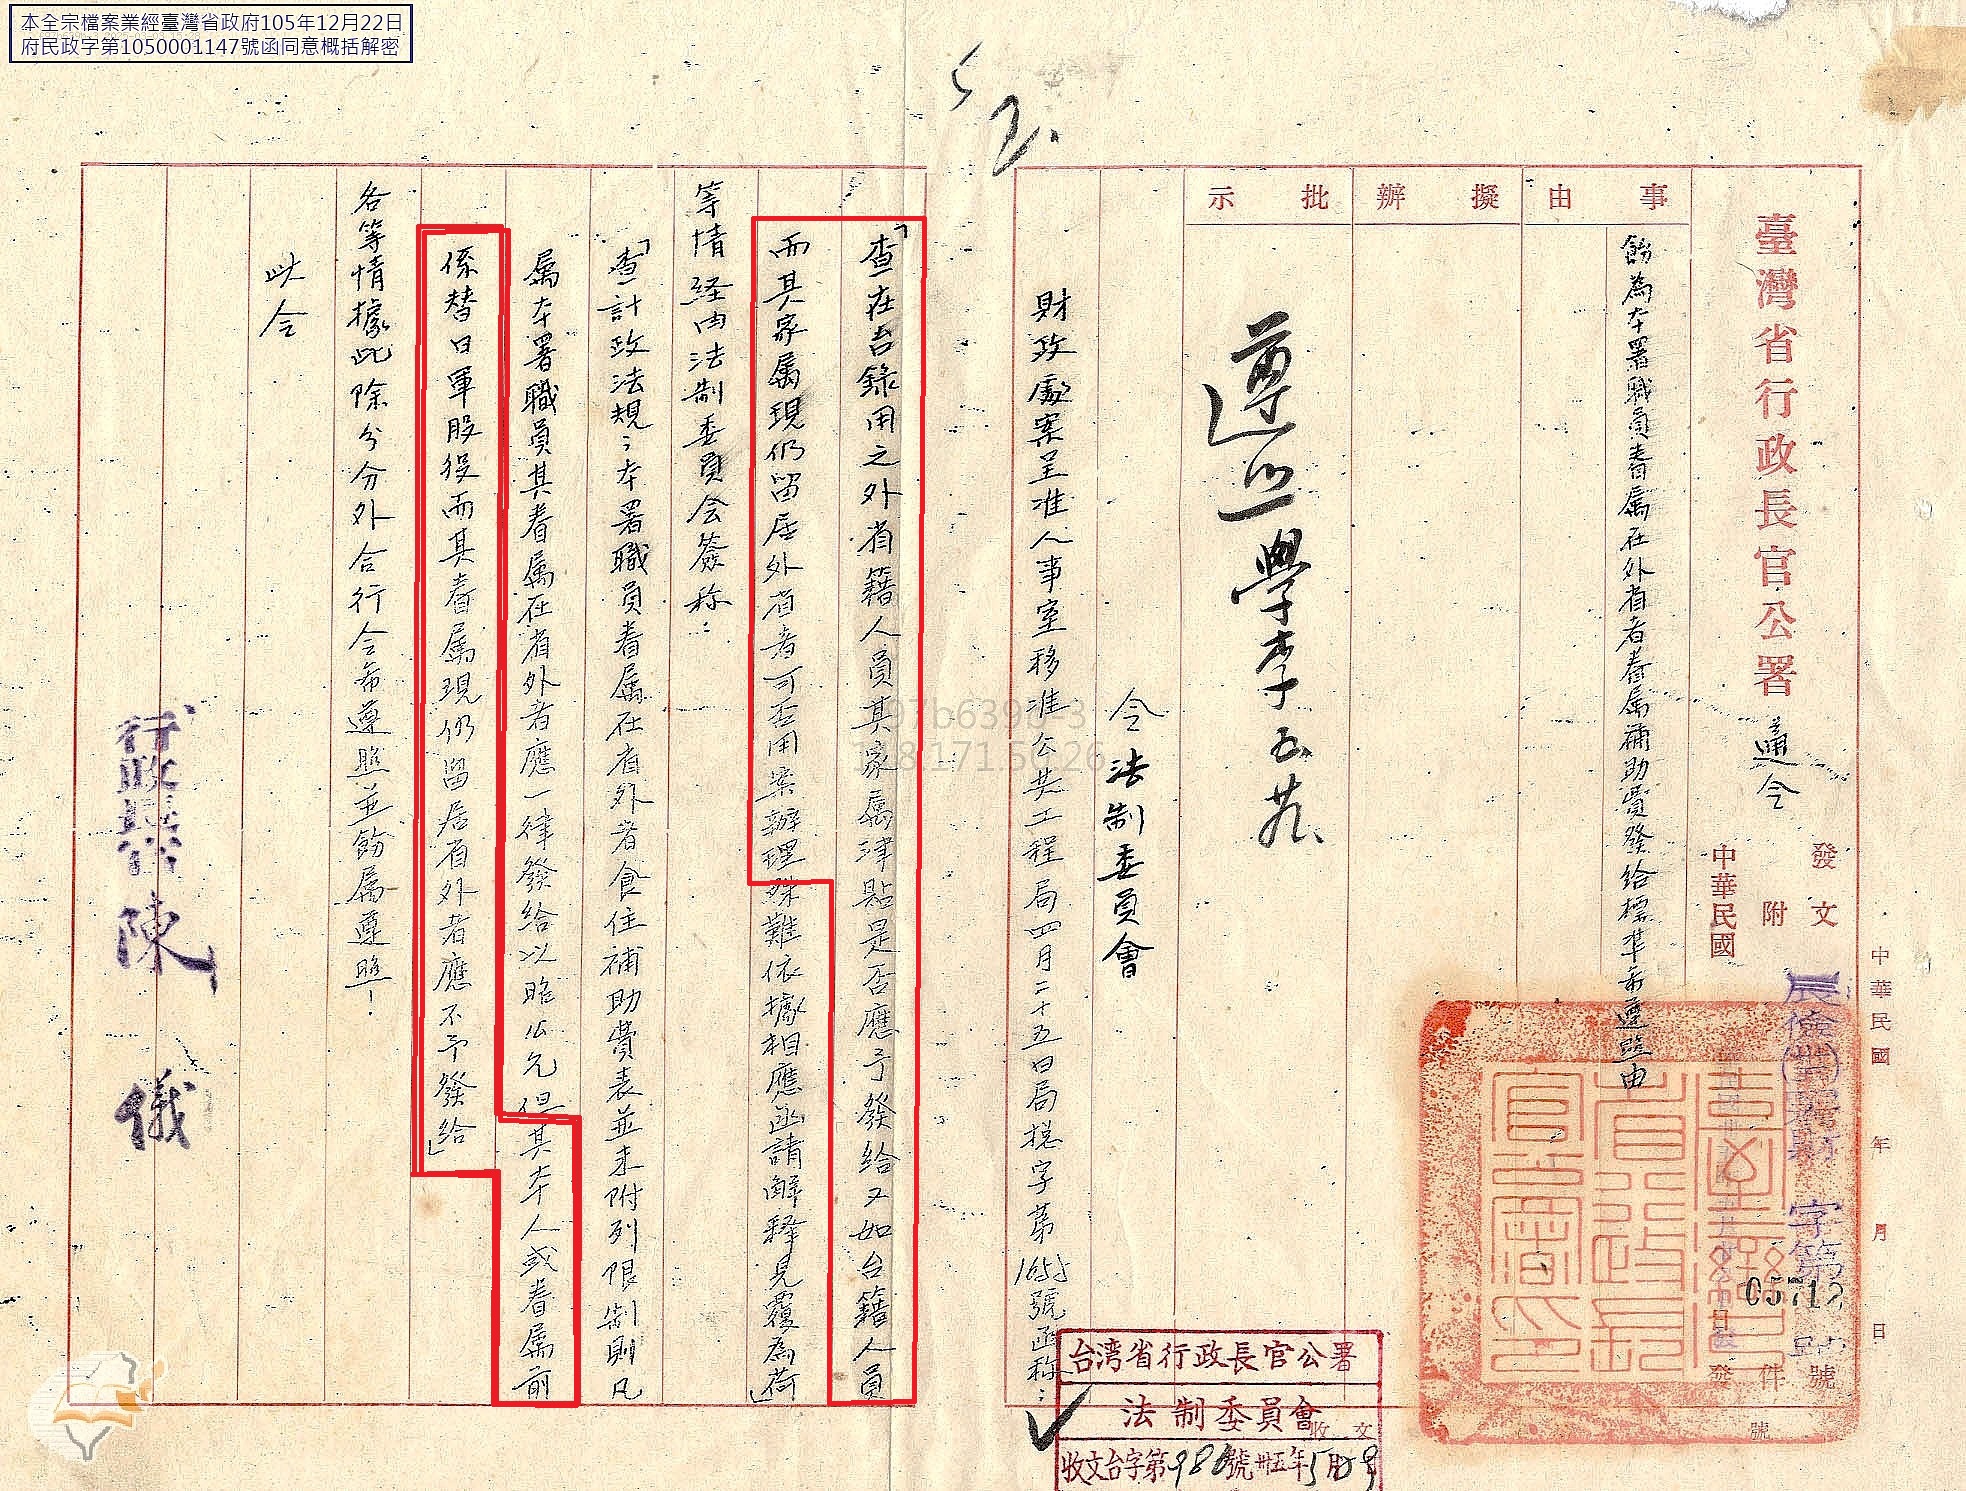 本全宗檔案業經臺灣省政府105年12月22日
府民政字第1050001147號函同意概括解密
臺灣省行政長官公署 通令
發文 字第05712號
附件
中華民國 發
中華民國 年 月 日
號
事由
飭為本署職員眷属在外省者眷属補助費發給標准希遵照由
擬辦
批示
遵照
令法制委員會
財政處案呈准人事室移准公共工程局四月二十五日局搃字第1655號函称：
「查在台錄用之外省籍人員其家属津貼是否應予發給又如台籍人員
而其家属現仍留居外省者可否用案辦理殊難依據相應函請解释見覆為荷」
等情経由法制委員会簽称：
「查計政法規：本署職員眷属在省外者食住補助費表並未附列限制則凡
属本署職員其眷属在省外者應一律發給以昭公允但其本人或眷属前
係替日軍股役而其眷属現仍留居省外者應不予發給」
各等情據此除分分外合行令希遵照並飭属遵照！
此令
行政長官 陳儀
台湾省行政長官公署
法制委員會收文
收文台字第980號卅五年5月9